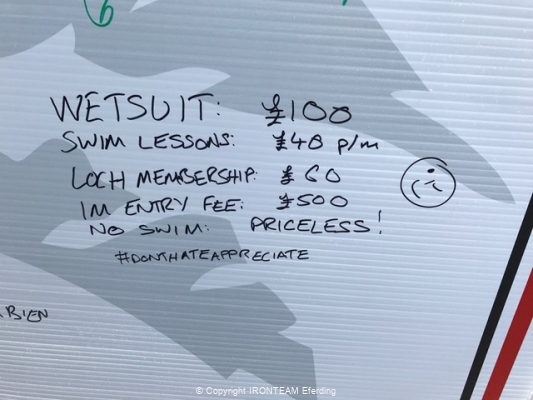 6
WETSUIT: £100
SWIM LESSONS: £40 p/m
LOCH MEMBERSHIP: £60
IM ENTRY FEE: £500
NO SWIM: PRICELESS!
#DONTHATEAPPRECIATE
BIEN
© Copyright IRONTEAM Eferding